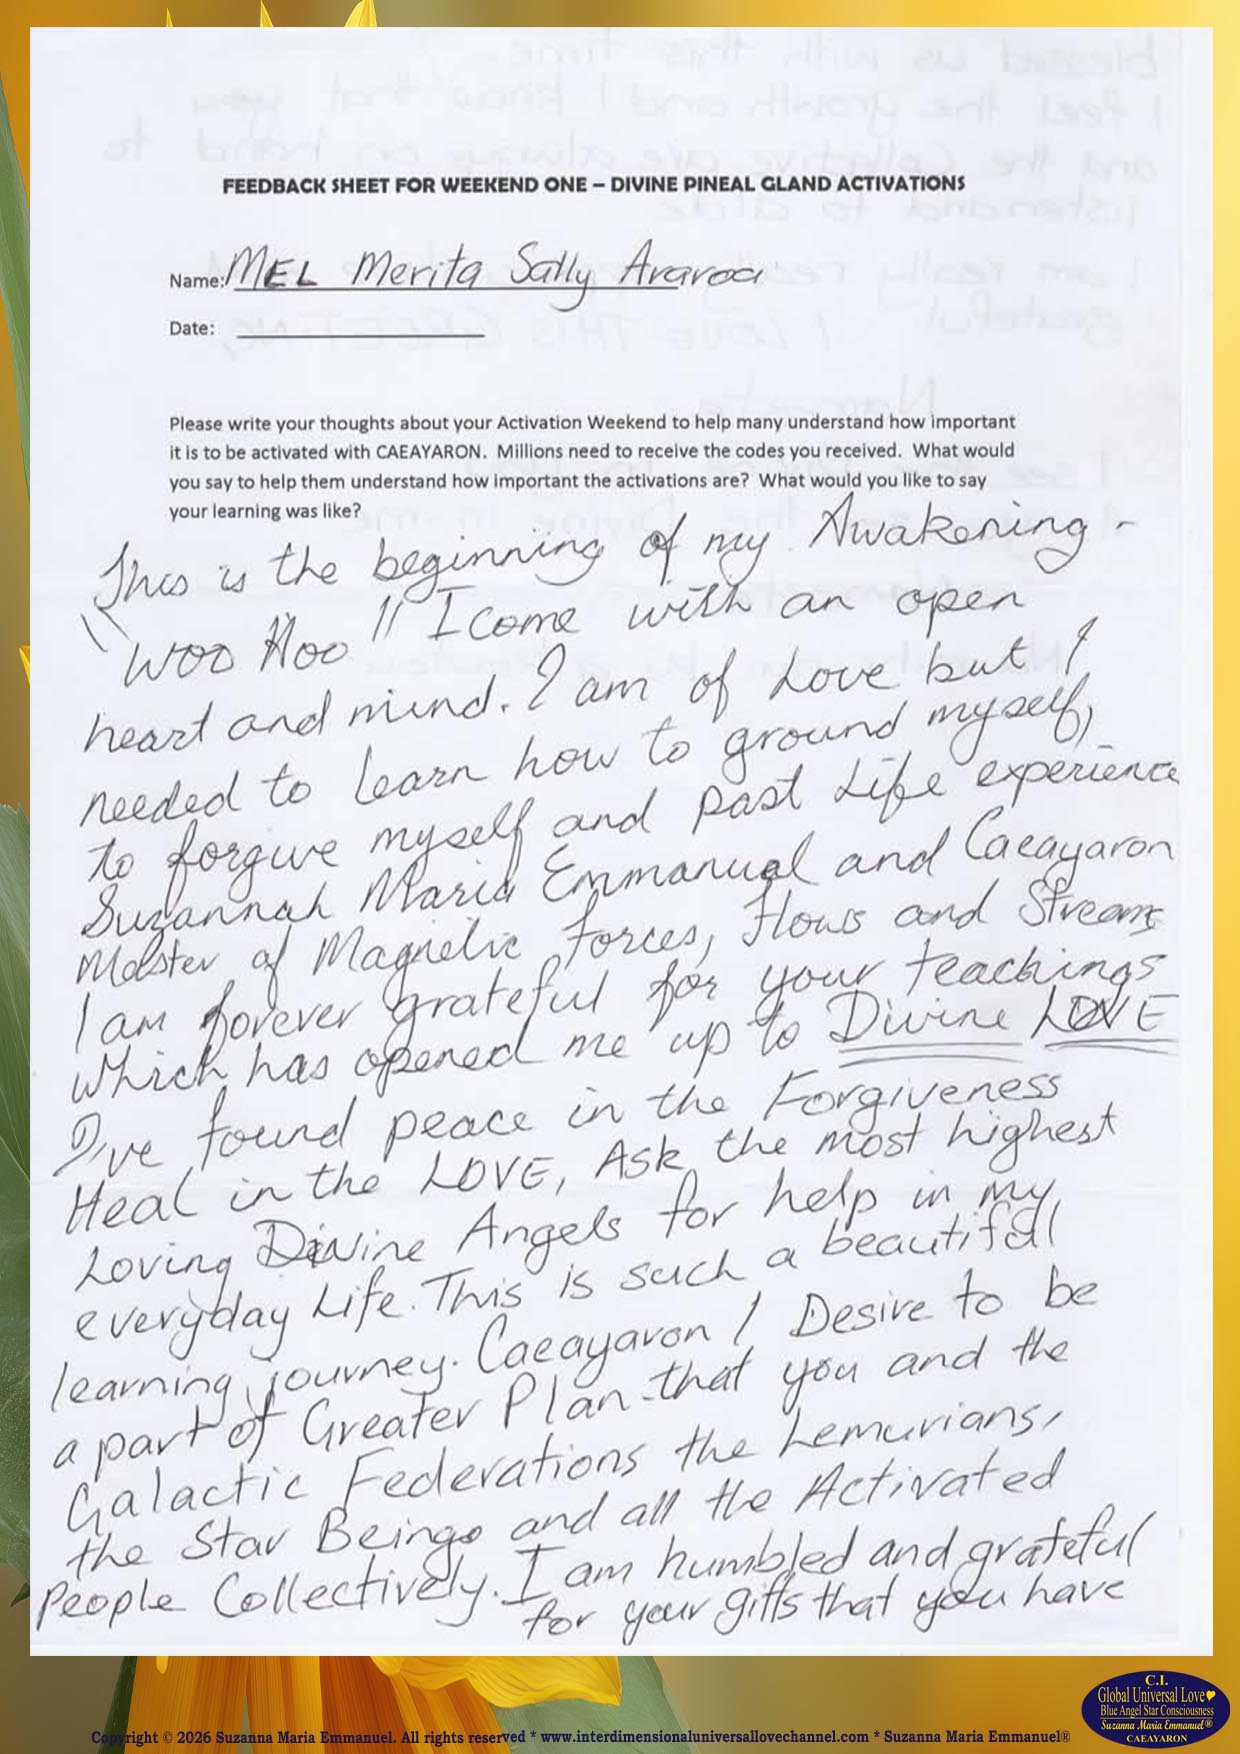 FEEDBACK SHEET FOR WEEKEND ONE – DIVINE PINEAL GLAND ACTIVATIONS
Name: MEL Merita Sally Araroa
Date:
Please write your thoughts about your Activation Weekend to help many understand how important
it is to be activated with CAEAYARON. Millions need to receive the codes you received. What would
you say to help them understand how important the activations are? What would you like to say
your learning was like?
This is the beginning of my Awakening -
"WOO HOO" I come with an open
heart and mind. I am of Love but I
needed to learn how to ground myself,
to forgive myself and past Life experience
Suzannah Maria Emmanual and Caeayaron
Master of Magnetic Forces, Flows and Streams
I am forever grateful for your teachings
which has opened me up to Divine LOVE
I've found peace in the Forgiveness
Heal in the LOVE, Ask the most highest
Loving Divine Angels for help in my
everyday Life. This is such a beautiful
learning journey. Caeayaron I Desire to be
a part of Greater Plan that you and the
Galactic Federations the Lemurians,
the Star Beings and all the Activated
People Collectively. I am humbled and grateful
for your gifts that you have
C.I.
Global Universal Love
Blue Angel Star Consciousness
Suzanna Maria Emmanuel®
CAEAYARON
Copyright © 2026 Suzanna Maria Emmanuel. All rights reserved * www.interdimensionaluniversallovechannel.com * Suzanna Maria Emmanuel®